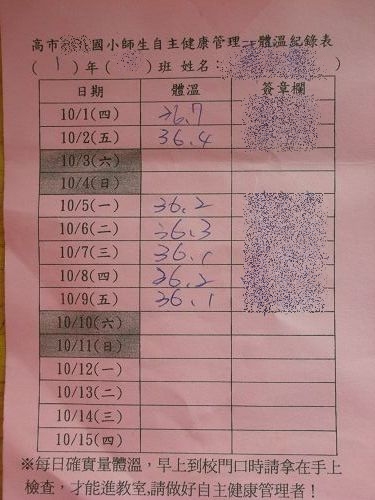 高市 國小師生自主健康管理－體溫紀錄表
( 1 ) 年 ( ) 班 姓名：( )
日期 體溫 簽章欄
10/1(四) 36.7
10/2(五) 36.4
10/3(六)
10/4(日)
10/5(一) 36.2
10/6(二) 36.3
10/7(三) 36.1
10/8(四) 36.2
10/9(五) 36.1
10/10(六)
10/11(日)
10/12(一)
10/13(二)
10/14(三)
10/15(四)
※每日確實量體溫，早上到校門口時請拿在手上
檢查，才能進教室,請做好自主健康管理者！